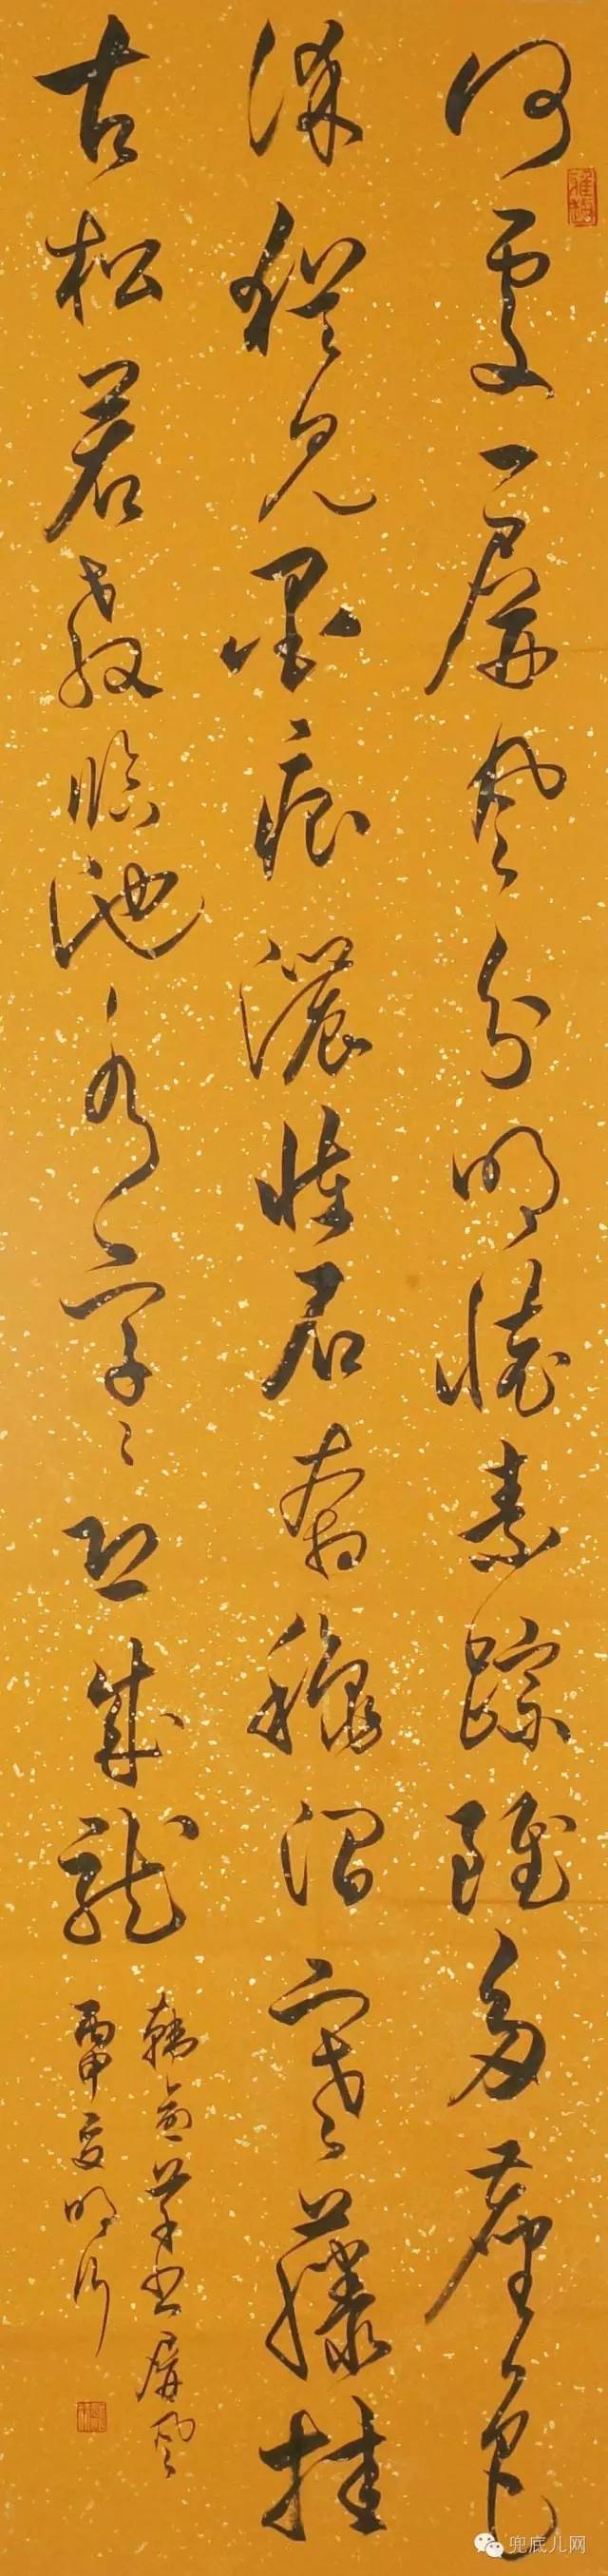 何處一屏風分明懷素踪雖多塵色
染猶見墨痕濃怪石奔秋澗寒藤挂
古松若教臨池水字々恐成龍
韓偓草書屏風
丙申夏明
兜底儿网